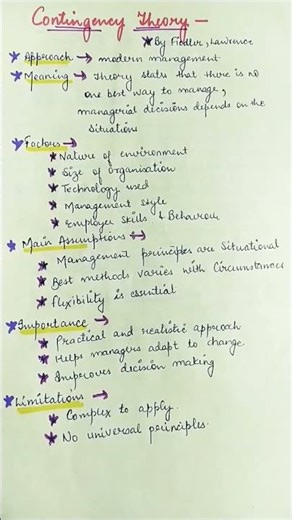 Contingency Theory —
* By Fiedler, Lawrence
* Approach → modern management
* Meaning → Theory stats that there is no
one best way to manage,
managerial decisions depends on the
situations
* Factors →
* Nature of environment
* Size of Organisation
* Technology used
* Management Style
* Employer Skills & Behaviour
* Main Assumptions →
* Management principles are Situational
* Best methods varies with Circumstances
* flexibility is essential
* Importance →
* Practical and realistic approach
* Helps managers adapt to change
* Improves decision making
* Limitations →
* Complex to apply.
* No universal principles.